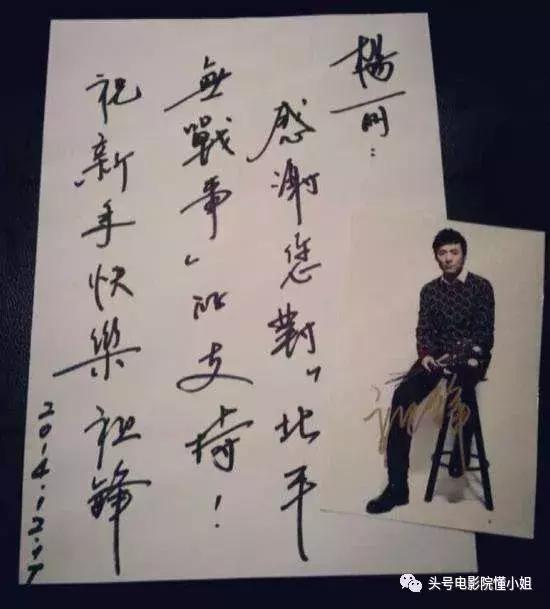 楊一
感謝您對“北平
無戰事”的支持！
祝新年快樂 祖鋒
2014.12.17
头号电影院懂小姐